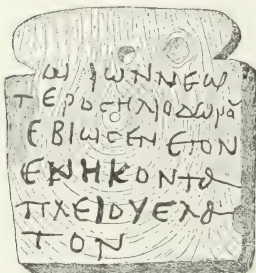 ω ιωννεω
ΤΕΡΟϹΗΛΙΟΔωΡΑ
ΕΒΙωϹΕΝ ΕΤΟΝ
ΕΞΗΚΟΝΤΑ
ΠΛΕΙΟΥΕΛΑ
ΤΟΝ